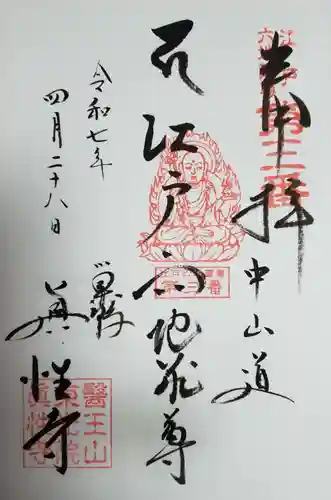 奉拝
中山道
江戸六地蔵尊
令和七年
四月二十八日
巣鴨
眞性寺
江戸六
第三番
醫王山
東光院
眞性寺